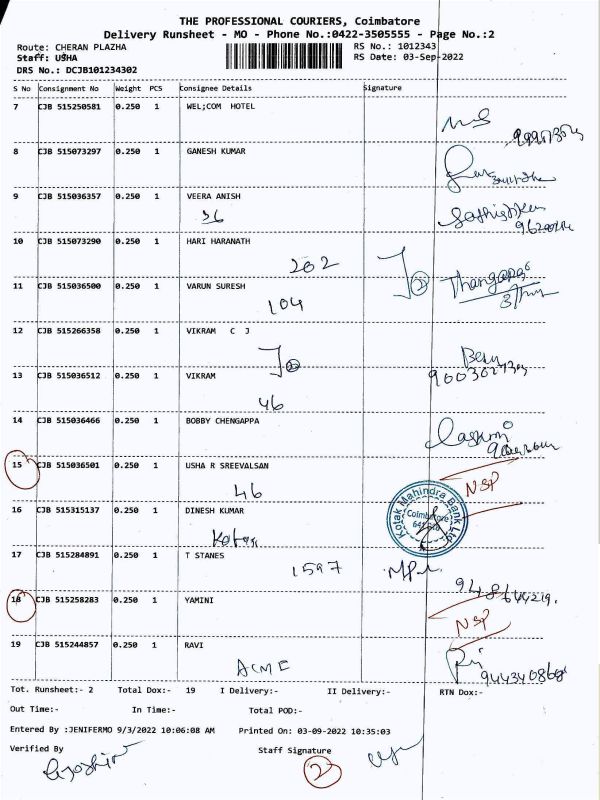 THE PROFESSIONAL COURIERS, Coimbatore
Delivery Runsheet - MO - Phone No.:0422-3505555 - Page No.:2
Route: CHERAN PLAZHA RS No.: 1012343
Staff: USHA RS Date: 03-Sep-2022
DRS No.: DCJB101234302
S No Consignment No Weight PCS Consignee Details Signature
7 CJB 515250581 0.250 1 WEL;COM HOTEL
8 CJB 515073297 0.250 1 GANESH KUMAR
9 CJB 515036357 0.250 1 VEERA ANISH
36
10 CJB 515073290 0.250 1 HARI HARANATH
202
11 CJB 515036500 0.250 1 VARUN SURESH
104
12 CJB 515266358 0.250 1 VIKRAM C J
13 CJB 515036512 0.250 1 VIKRAM
46
14 CJB 515036466 0.250 1 BOBBY CHENGAPPA
15 CJB 515036501 0.250 1 USHA R SREEVALSAN
46 NSP
16 CJB 515315137 0.250 1 DINESH KUMAR
Kotak Mahindra Bank Ltd
Coimbatore
Kotak
17 CJB 515284891 0.250 1 T STANES
1597
18 CJB 515258283 0.250 1 YAMINI
NSP
19 CJB 515244857 0.250 1 RAVI
ACME
Tot. Runsheet:- 2 Total Dox:- 19 I Delivery:- II Delivery:- RTN Dox:-
Out Time:- In Time:- Total POD:-
Entered By :JENIFERMO 9/3/2022 10:06:08 AM Printed On: 03-09-2022 10:35:03
Verified By Staff Signature
2